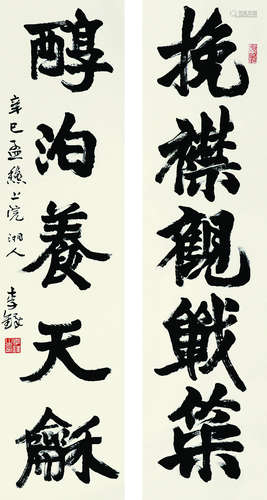 挽襟觀戰策
醇泊養天龢
辛巳孟穐上浣湘人
李鐸